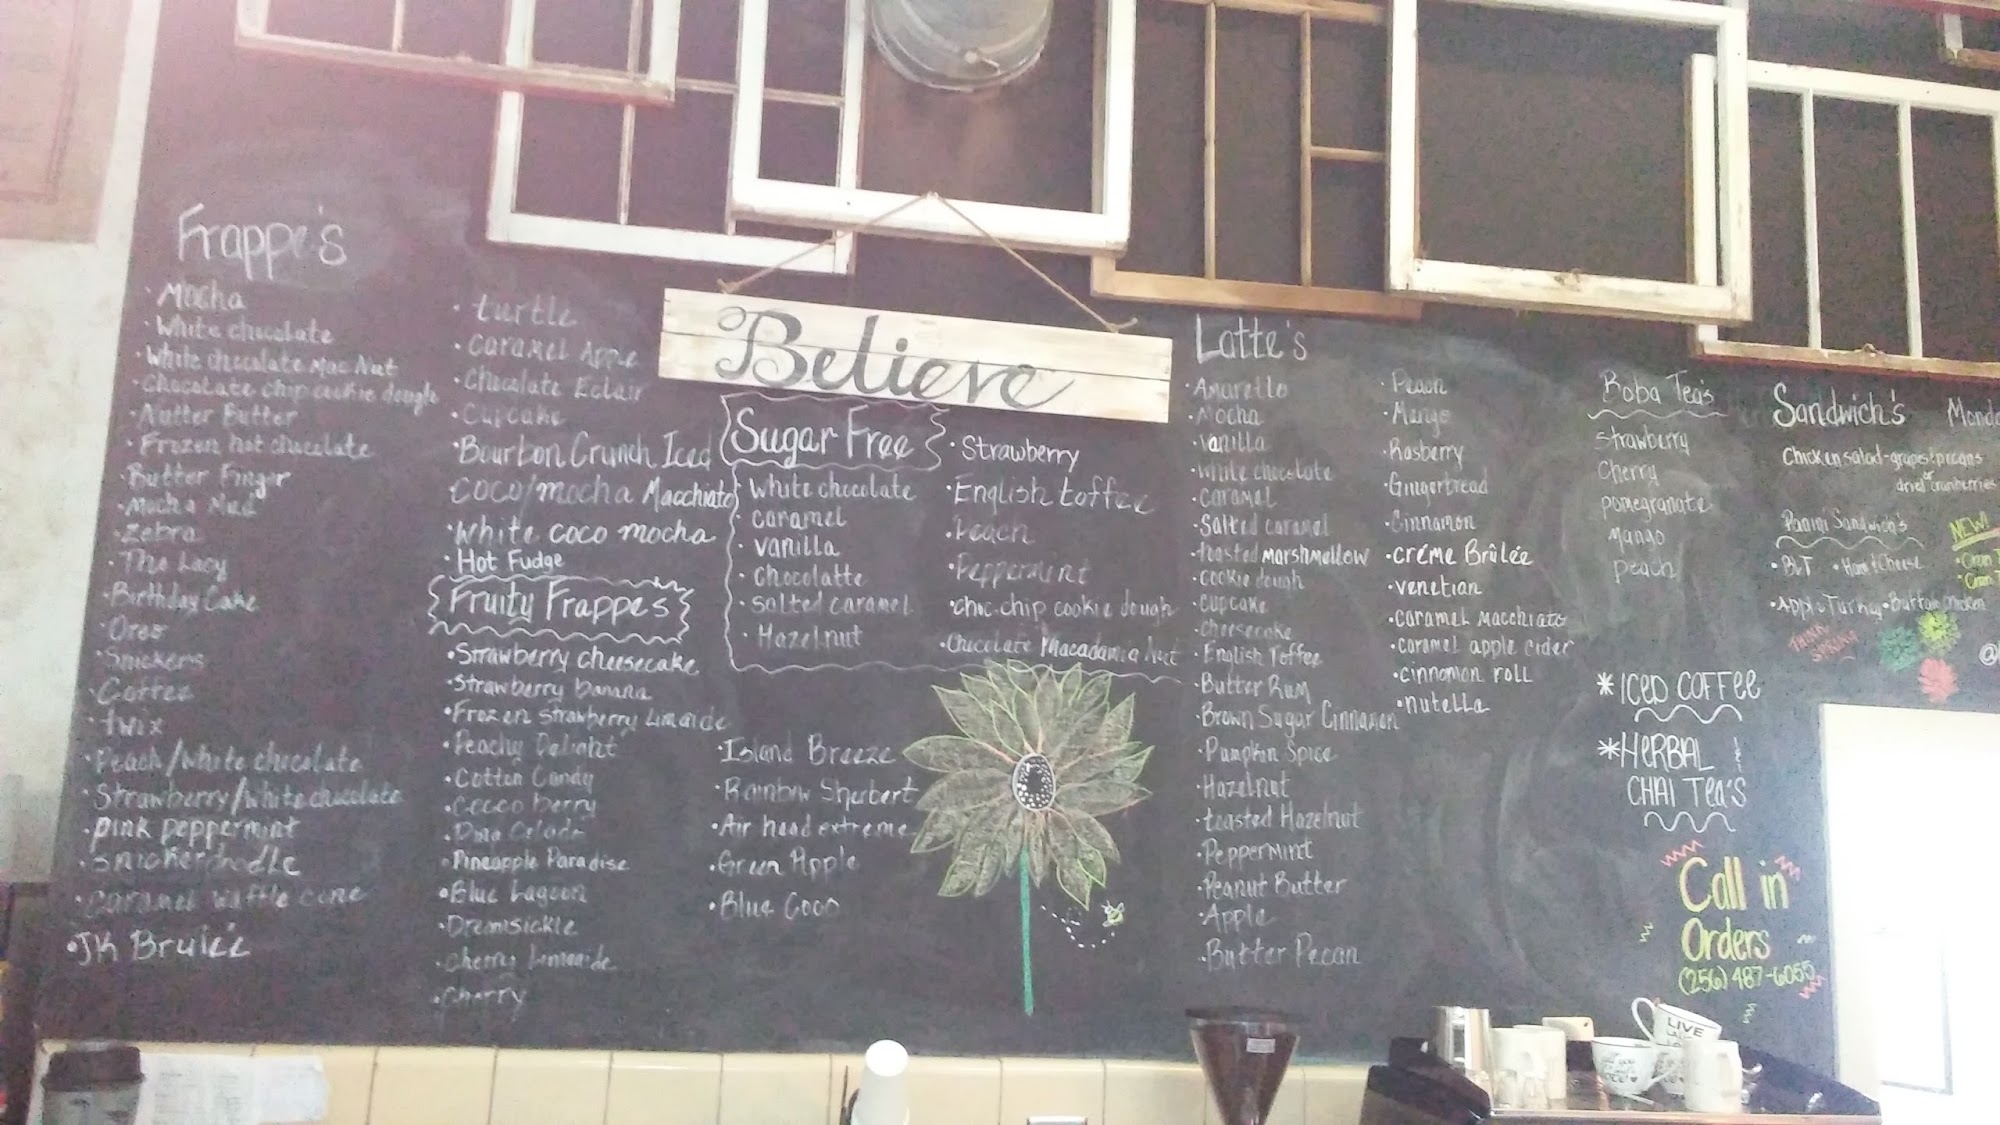 Frappe's
• Mocha
• White chocolate
• White chocolate Mac Nut
• Chocolate chip cookie dough
• Nutter Butter
• Frozen hot chocolate
• Butter Finger
• Mocha Mud
• Zebra
• The Lacy
• Birthday Cake
• Oreo
• Snickers
• Coffee
• twix
• Peach/white chocolate
• Strawberry/white chocolate
• pink peppermint
• Snickerdoodle
• Caramel waffle cone
• JK
• turtle
• Caramel Apple
• Chocolate Eclair
• Cupcake
• Bourbon Crunch Iced
coco/mocha Macchiato
• White coco mocha
• Hot Fudge
Fruity Frappe's
• Strawberry cheesecake
• Strawberry banana
• Frozen Strawberry Limaide
• Peachy Delight
• Cotton Candy
• Cocco berry
• Pina Colada
• Pineapple Paradise
• Blue Lagoon
• Dreamsickle
• Cherry Limeaide
• Cherry
• Island Breeze
• Rainbow Sherbert
• Air head extreme
• Green Apple
• Blue Coco
Believe
Sugar Free
• White chocolate
• caramel
• vanilla
• chocolatte
• salted caramel
• Hazelnut
• Strawberry
• English toffee
• Peach
• Peppermint
• choc.chip cookie dough
• Chocolate Macadamia Nut
Latte's
• Amaretto
• Mocha
• Vanilla
• White chocolate
• Caramel
• Salted caramel
• toasted marshmellow
• cookie dough
• cupcake
• cheesecake
• English Toffee
• Butter Rum
• Brown Sugar Cinnamon
• Pumpkin Spice
• Hazelnut
• toasted Hazelnut
• Peppermint
• Peanut Butter
• Apple
• Butter Pecan
• Peach
• Mango
• Rasberry
• Gingerbread
• Cinnamon
• créme Brûlée
• venetian
• caramel macchiato
• caramel apple cider
• cinnamon roll
• nutella
Boba Tea's
Strawberry
Cherry
pomegranate
Mango
peach
* ICED COFFEE
* HERBAL &
CHAI TEA'S
Call in
Orders
(256) 487-6055
Sandwich's
Chicken salad-grapes+pecans
or
dried cranberries
Panini Sandwich's
• BLT • Ham & Cheese
• Apple Turkey • Buffalo Chicken
THINK
SPRING
NEW!
LIVE